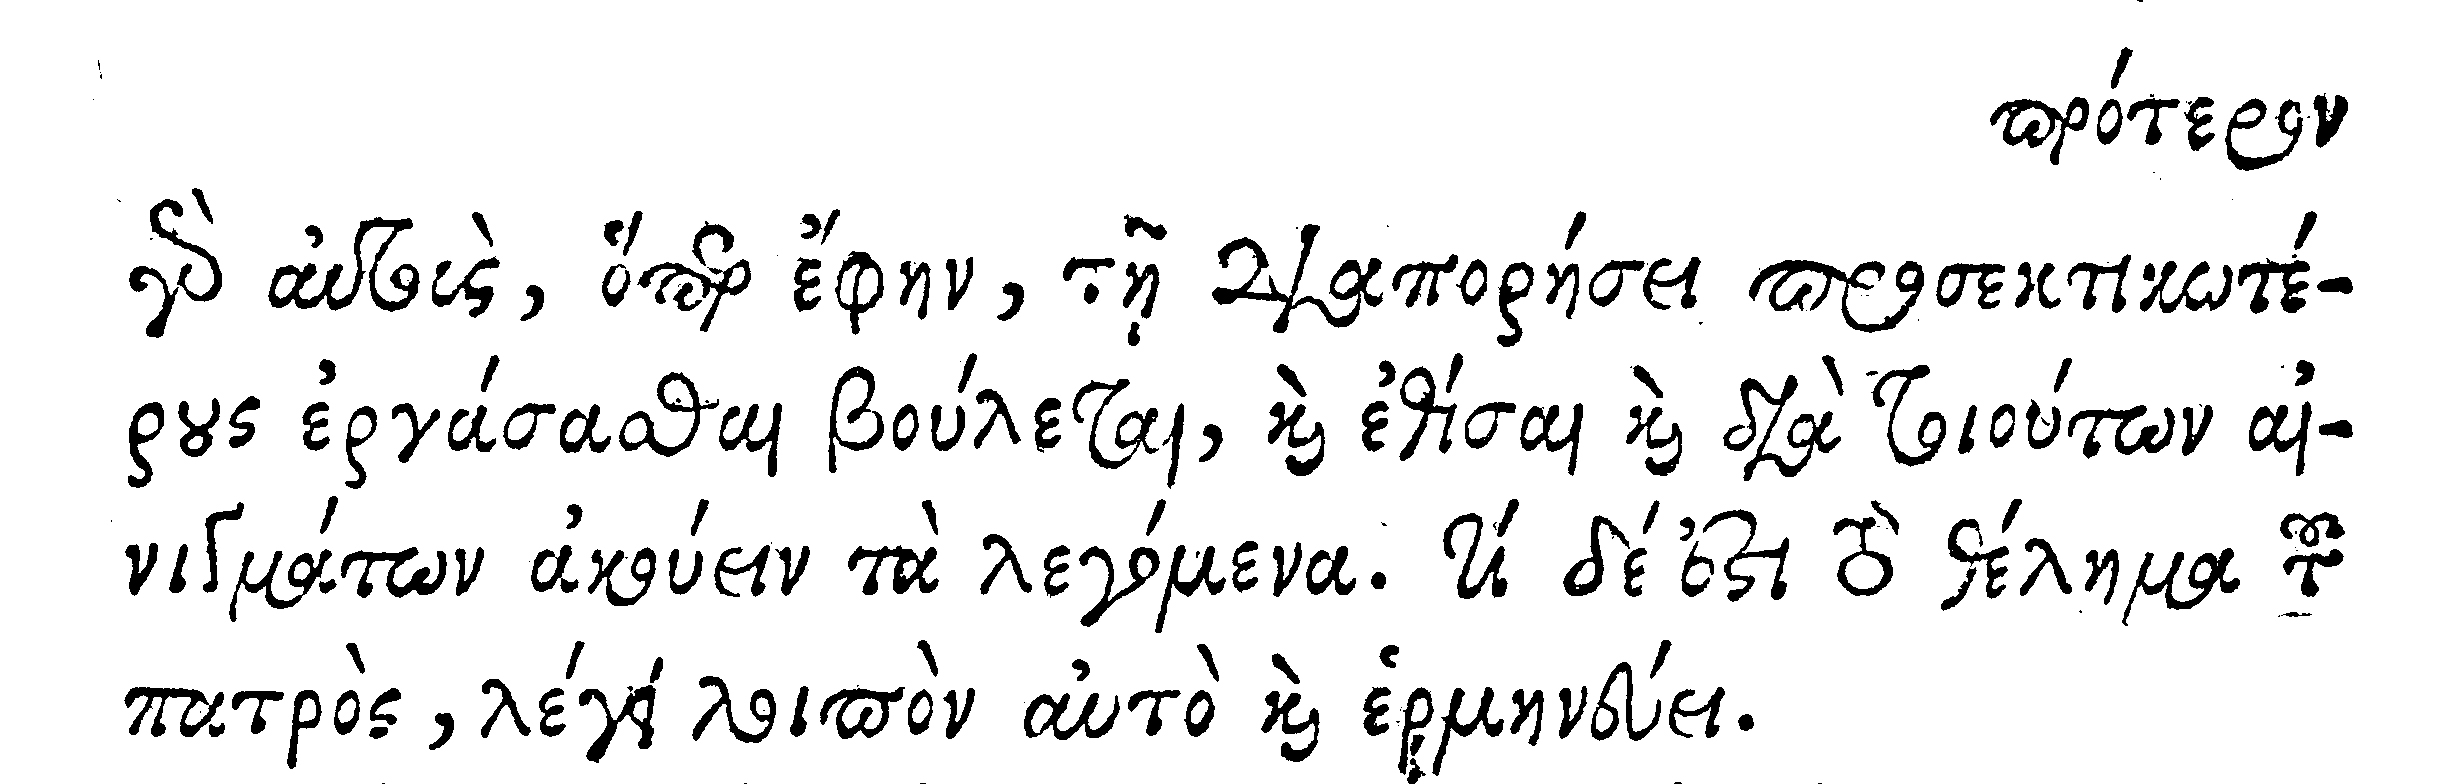 πρότερον
γὰρ αὐτοὺς, ὅπερ ἔφην, τῇ διαπορήσει προσεκτικωτέ-
ρους ἐργάσασθαι βούλεται, καὶ ἐθίσαι καὶ διὰ τοιούτων αἰ-
νιγμάτων ἀκούειν τὰ λεγόμενα. τί δέ ἐστι τὸ θέλημα τοῦ
πατρὸς, λέγει λοιπὸν αὐτὸ καὶ ἑρμηνεύει.